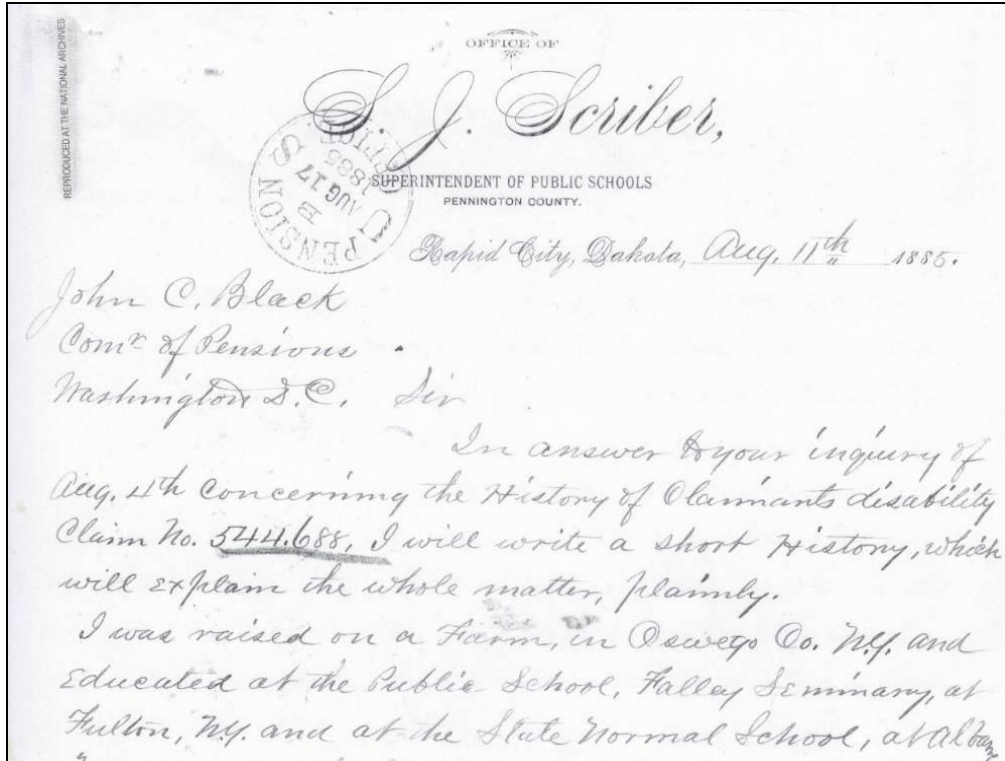 REPRODUCED AT THE NATIONAL ARCHIVES
OFFICE OF
S. J. Scriber,
SUPERINTENDENT OF PUBLIC SCHOOLS
PENNINGTON COUNTY.
U.S. PENSION OFFICE
B
AUG 17
1885
Rapid City, Dakota, Aug. 11th 1885.
John C. Black
Comr of Pensions
Washington D.C. Sir
In answer to your inquiry of
Aug. 4th concerning the History of Claimants disability
Claim No. 544.688, I will write a short History, which
will explain the whole matter, plainly.
I was raised on a Farm, in Oswego Co. N.Y. and
Educated at the Public School, Falley Seminary, at
Fulton, N.Y. and at the State Normal School, at Albany